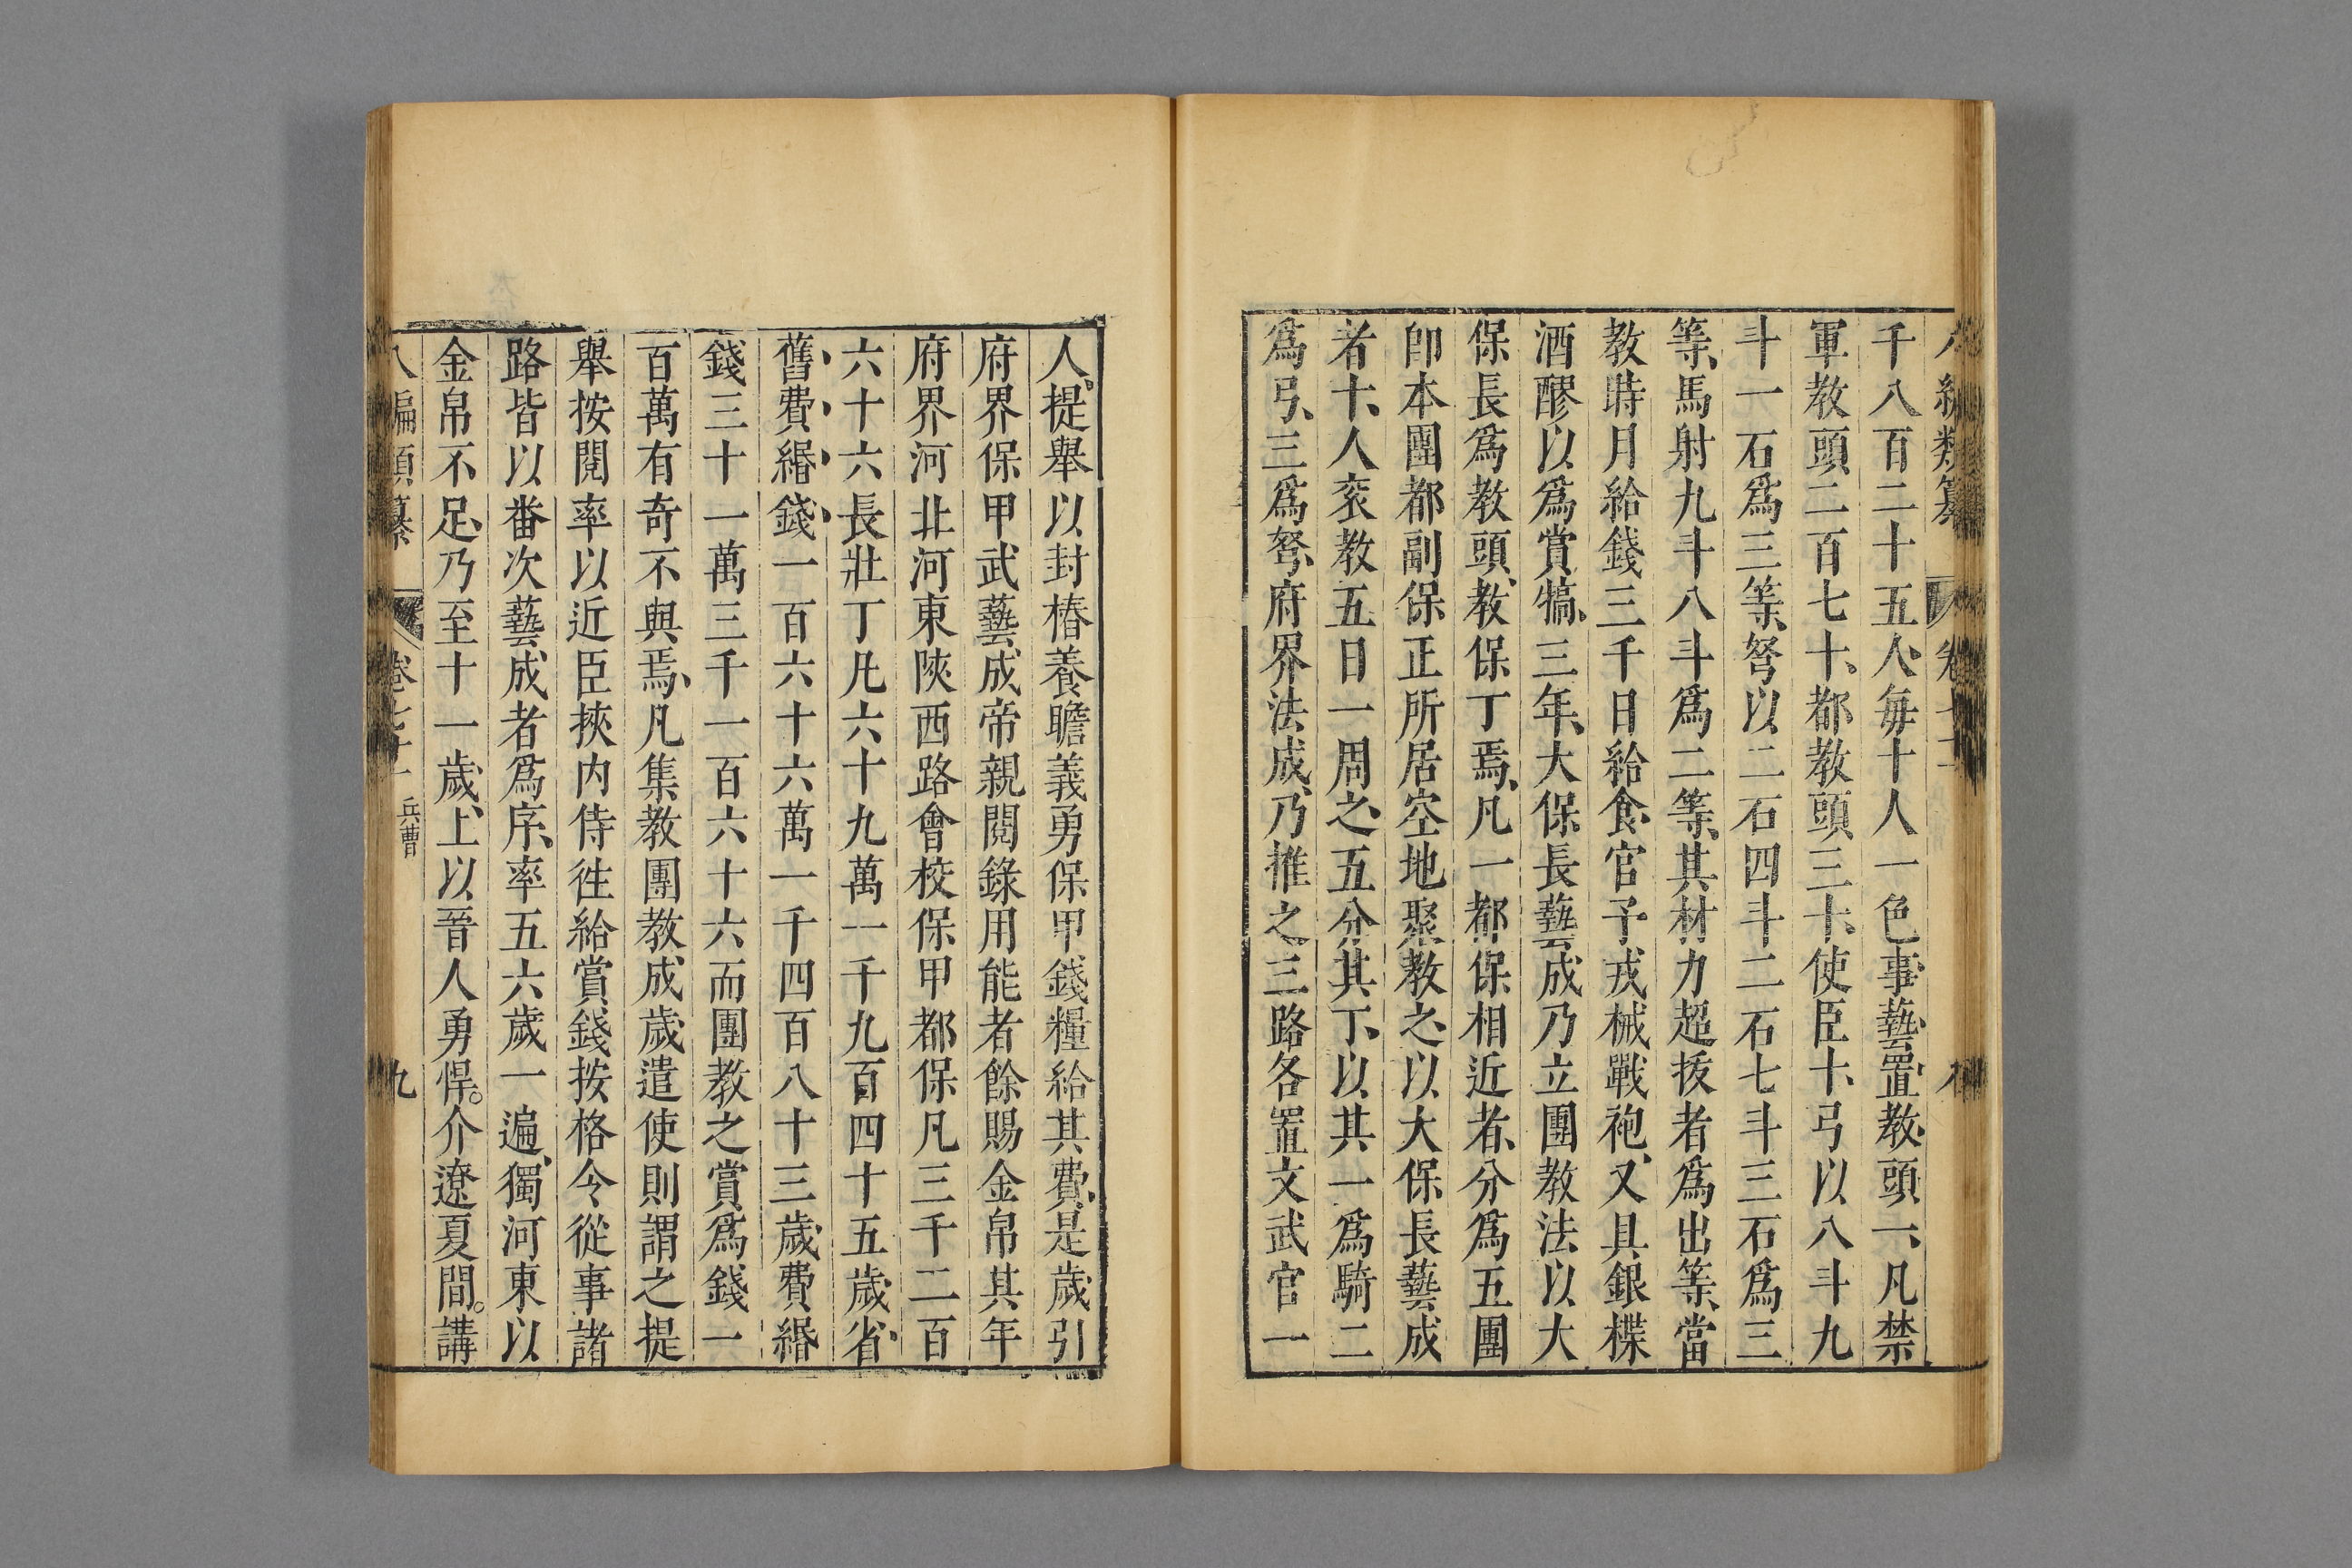 千八百二十五人、每十人一色事藝、置教頭一、凡禁
軍教頭二百七十、都教頭三十、使臣十、弓以八斗九
斗一石爲三等、弩以二石四斗二石七斗三石爲三
等、馬射九斗八斗爲二等、其材力超拔者爲出等、當
教時月給錢三千日給食、官予戎械戰袍、又具銀楪
酒醪以爲賞犒、三年、大保長藝成乃立團教法以大
保長爲教頭、教保丁焉、凡一都保相近者、分爲五團
即本團都副保正所居空地聚教之、以大保長藝成
者十、人衮教五日一周之、五分其丁、以其一爲騎二
爲弓、三爲弩、府界法成、乃推之三路各置文武官一
人、提舉以封樁養贍義勇保甲錢糧給其費、是歲引
府界保甲武藝、成帝親閱錄用能者餘賜金帛其年
府界河北河東陝西路會校保甲都保凡三千二百
六十六長壯丁凡六十九萬一千九百四十五歲省、
舊費緡錢一百六十六萬一千四百八十三歲費緡
錢三十一萬三千一百六十六而團教之賞爲錢一
百萬有奇不與焉、凡集教團教成歲遣使則謂之提
舉按閱率以近臣挾内侍徃給賞錢按格令從事諸
路皆以番次藝成者爲序、率五六歲一遍、獨河東以
金帛不足、乃至十一歲、上以晉人勇悍。介遼夏間。講
八編類纂 卷七十一 兵曹 九